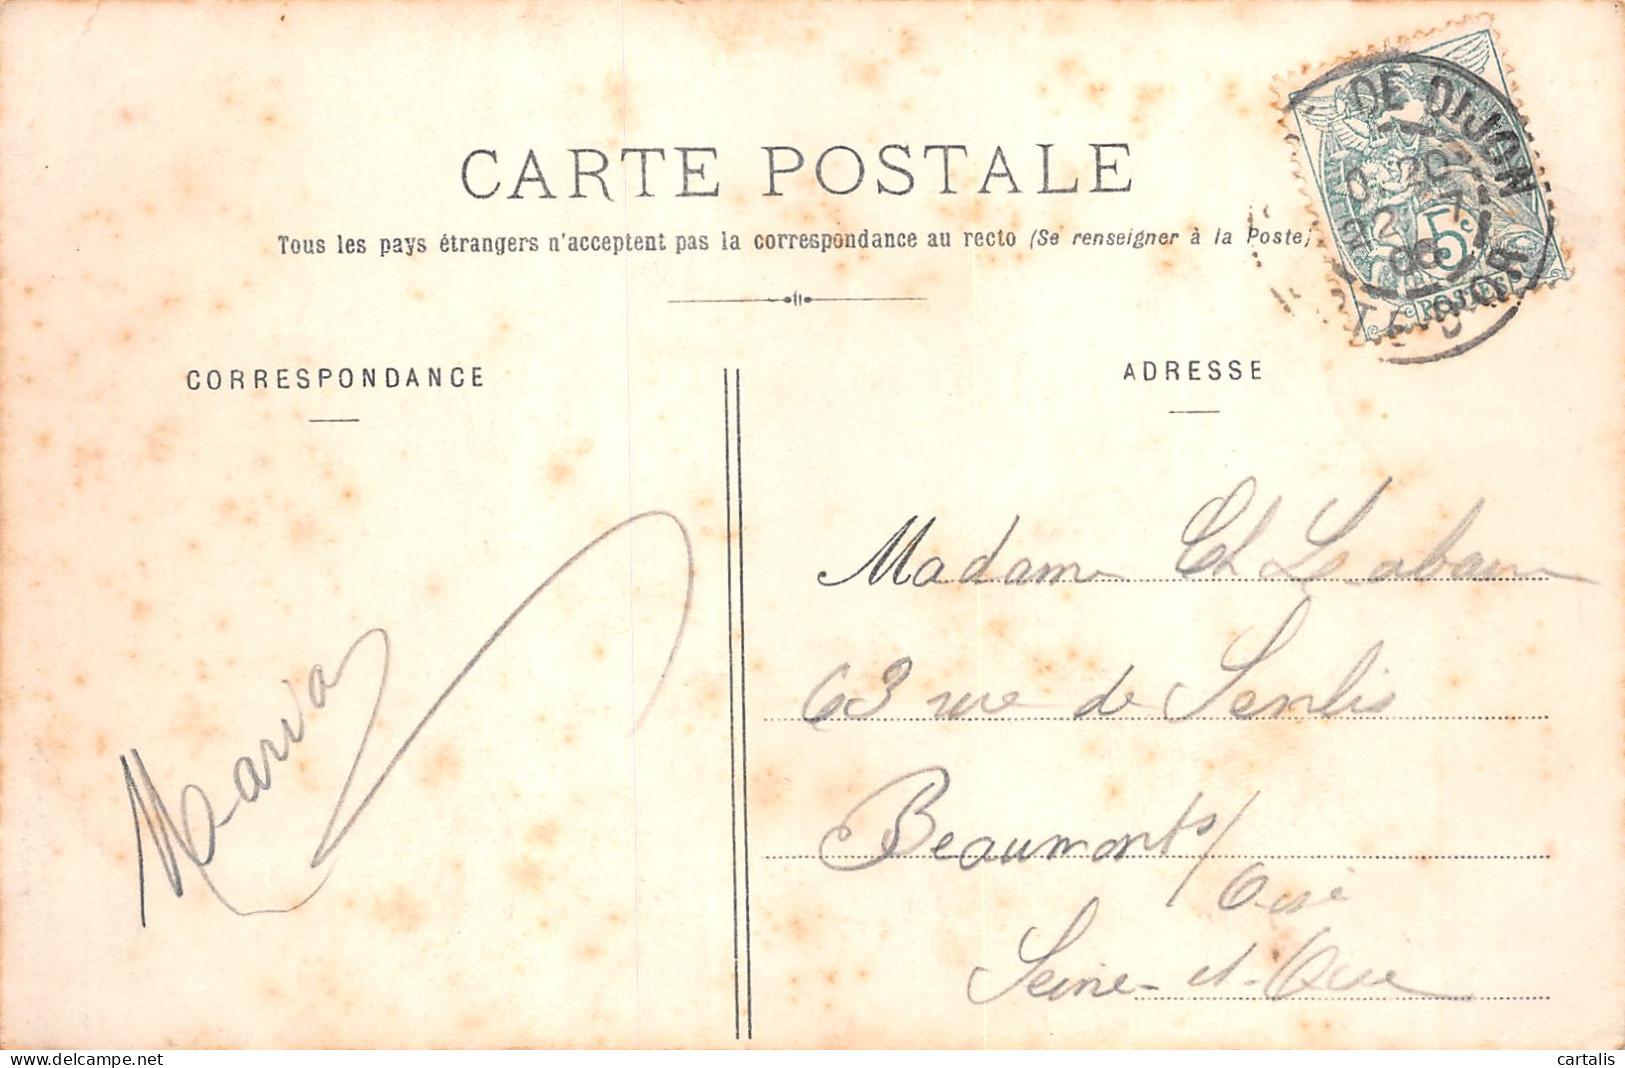 CARTE POSTALE
Tous les pays étrangers n'acceptent pas la correspondance au recto (Se renseigner à la Poste)
DE DIJON
20
2 - 7
06
5c
POSTES
CORRESPONDANCE
ADRESSE
Maria
Madame Ch
63 rue de Senlis
Beaumont s/
Oise
Seine-et-Oise
delcampe.net
cartalis